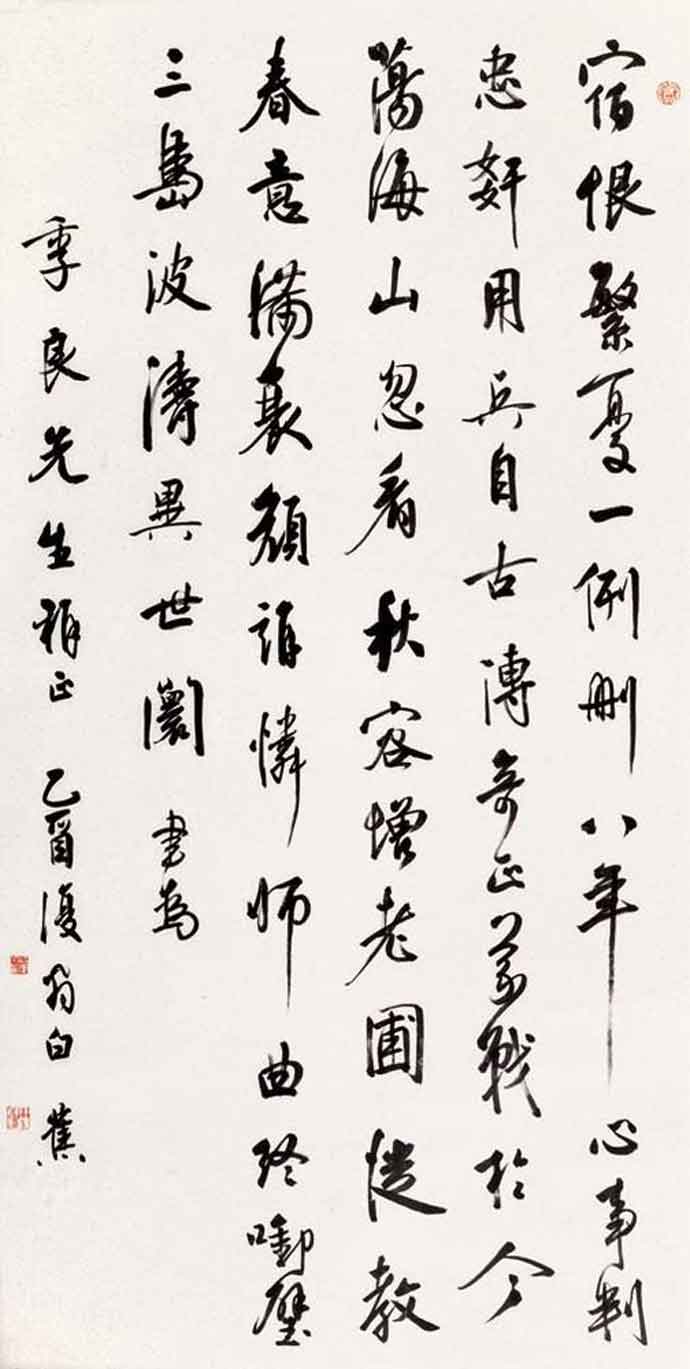 宿恨繁憂一例刪八年心事判
忠奸用兵自古傳奇正義戰於今
蕩海山忽看秋容增老圃從教
春意滿衰顏誰憐師曲終啣璧
三島波濤異世闤 書為
季良先生雅正 乙酉復翁白蕉